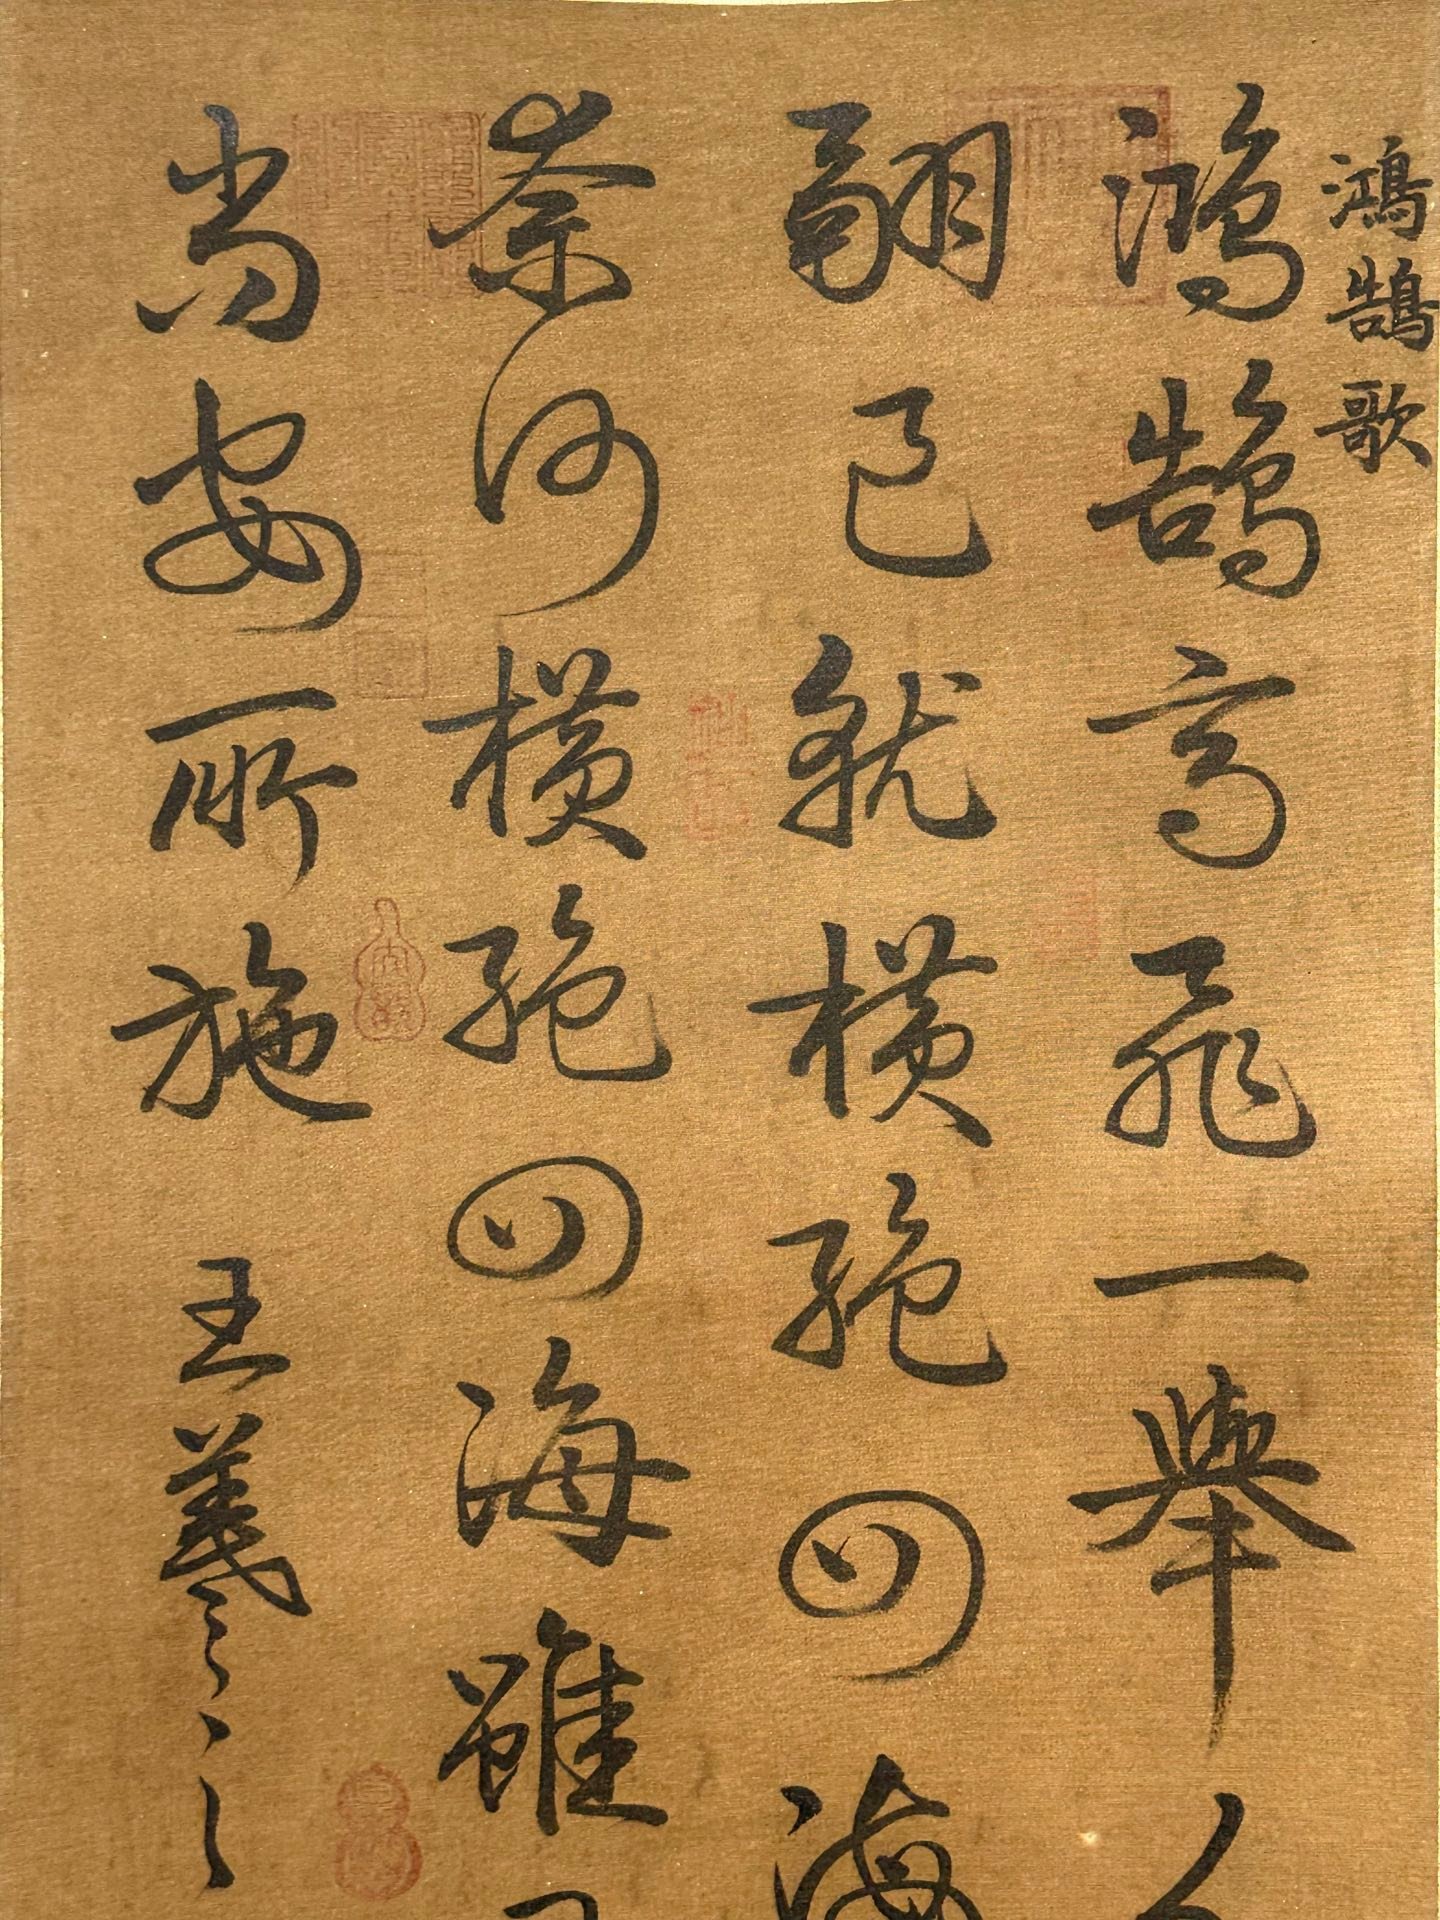 鴻鵠歌
鴻鵠高飛一舉
翮已就橫絕四海
奈何橫絕四海雖
尚安所施
王羲之